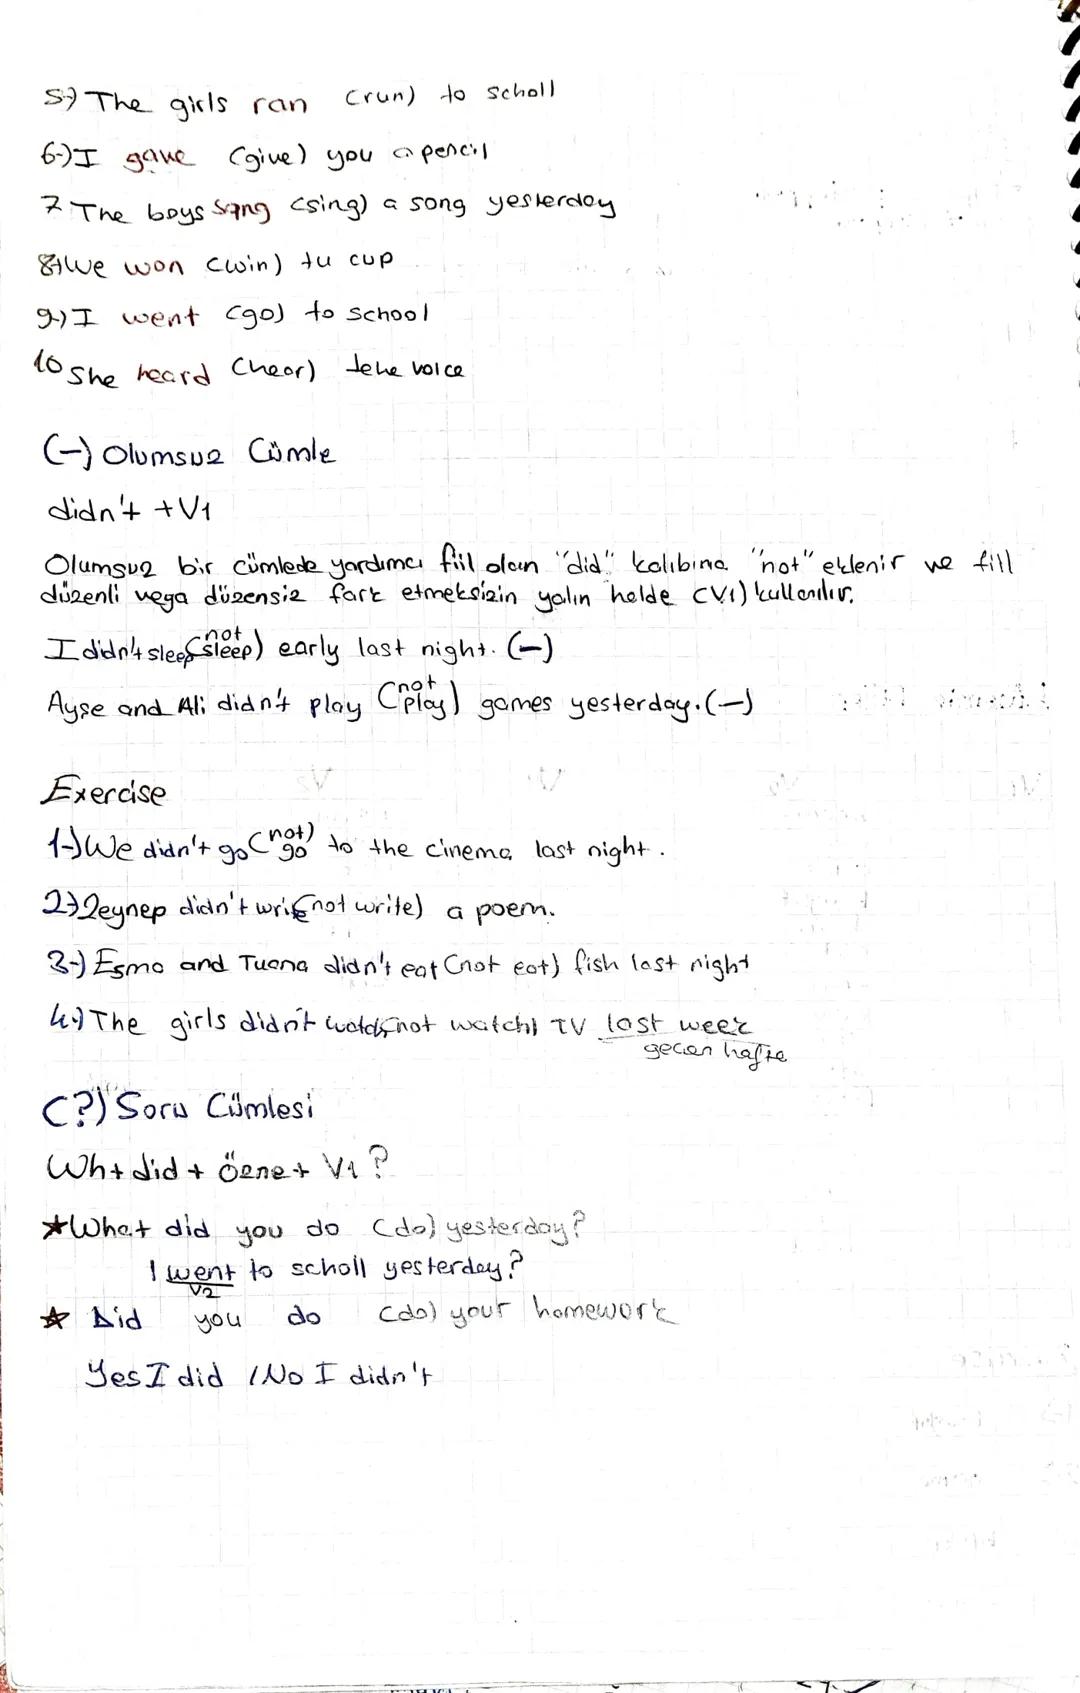 5-) The girls ran (run) to scholl
6-) I gave (give) you a pencil
7 The boys sang (sing) a song yesterday
8-) We won (win) tu cup
9-) I went (go) to school
10 She heard (hear) tehe voice
(-) Olumsuz Cümle
didn't + V1
Olumsuz bir cümlede yardımcı fiil olan "did" kalıbına "not" eklenir ve fill
düzenli veya düzensiz fark etmeksizin yalın halde (V1) kullanılır.
I didn't sleep (not sleep) early last night. (-)
Ayşe and Ali didn't play (not play) games yesterday. (-)
Exercise
1-) We didn't go (not go) to the cinema last night.
2-) Zeynep didn't write (not write) a poem.
3-) Esma and Tuana didn't eat (not eat) fish last night
4-) The girls didn't watch (not watch) TV last week
geçen hafta
(?) Soru Cümlesi
Wh + did + özne + V1 ?
* What did you do (do) yesterday?
I went to scholl yesterday?
V2
* Did you do (do) your homework
Yes I did / No I didn't